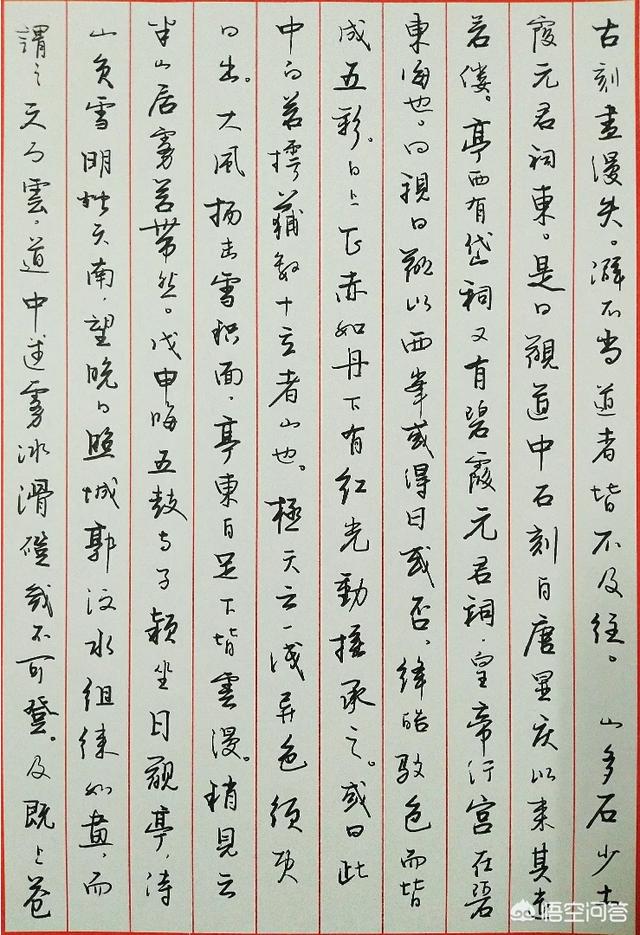 謂之天門雲。道中迷霧冰滑磴幾不可登。及既上蒼
山負雪明燭天南，望晚日照城郭汶水徂徠如畫，而
半山居霧若帶然。戊申晦五鼓與子潁坐日觀亭，待
日出。大風揚击雪积面，亭東自足下皆雲漫。稍見云
中白若摴蒱數十立者山也。極天云一线異色須臾
成五彩。日上正赤如丹下有紅光動搖承之。或曰此
東海也。回視日觀以西峯或得日或否，絳皓駁色而皆
若僂。亭西有岱祠又有碧霞元君祠，皇帝行宮在碧
霞元君祠東。是日觀道中石刻自唐显庆以来其遠
古刻盡漫失。澼不当道者皆不及往。山多石少土
悟空问答